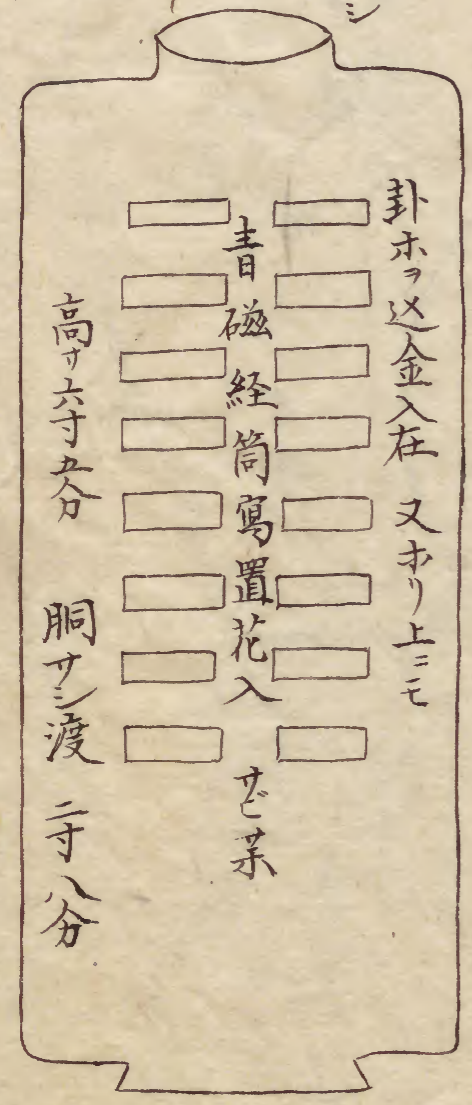 シ
卦ホヲ込金入在 又ホリ上ニモ
青磁経筒写置花入 サビ茶
高サ六寸五分 胴サシ渡 二寸八分